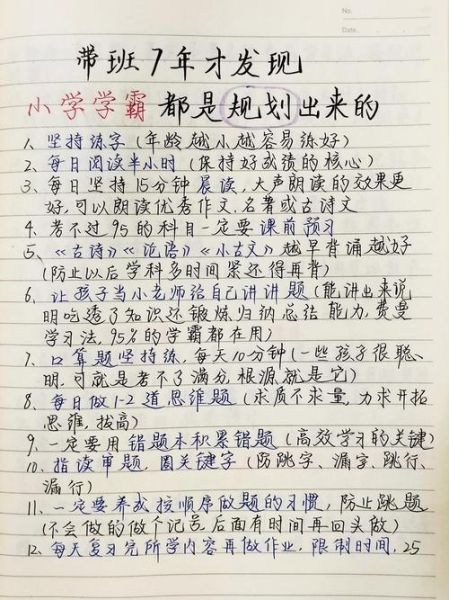 No.
Date.
带班7年才发现
小学学霸都是规划出来的
1、坚持练字(年龄越小越容易练好)
2、每日阅读半小时(保持好成绩的核心)
3、每日坚持15分钟晨读,大声朗读的效果更
好,可以朗读优秀作文、名著或古诗文
4、考不过95的科目一定要课前预习
5、《古诗》《论语》《小古文》越早背诵越好
(防止以后学科多时间紧还得再背)
6、让孩子当小老师给自己讲讲题(能讲出来说
明吃透了知识还锻炼归纳总结能力,费曼
学习法,95%的学霸都在用)
7、口算题坚持练,每天10分钟(一些孩子很聪、
明.可就是考不了满分,根源就是它)
8、每日做1-2道思维题(求质不求量,力求开拓
思维,拔高)
9、一定要用错题本积累错题(高效学习的关键)
10、指读审题,圈关键字(防跳字、漏字、跳行、
漏行)
11、一定要养成按顺序做题的习惯,防止跳题
(不会做的做个记号后面有时间再回头做)
12、每天复习完所学内容再做作业,限制时间,25